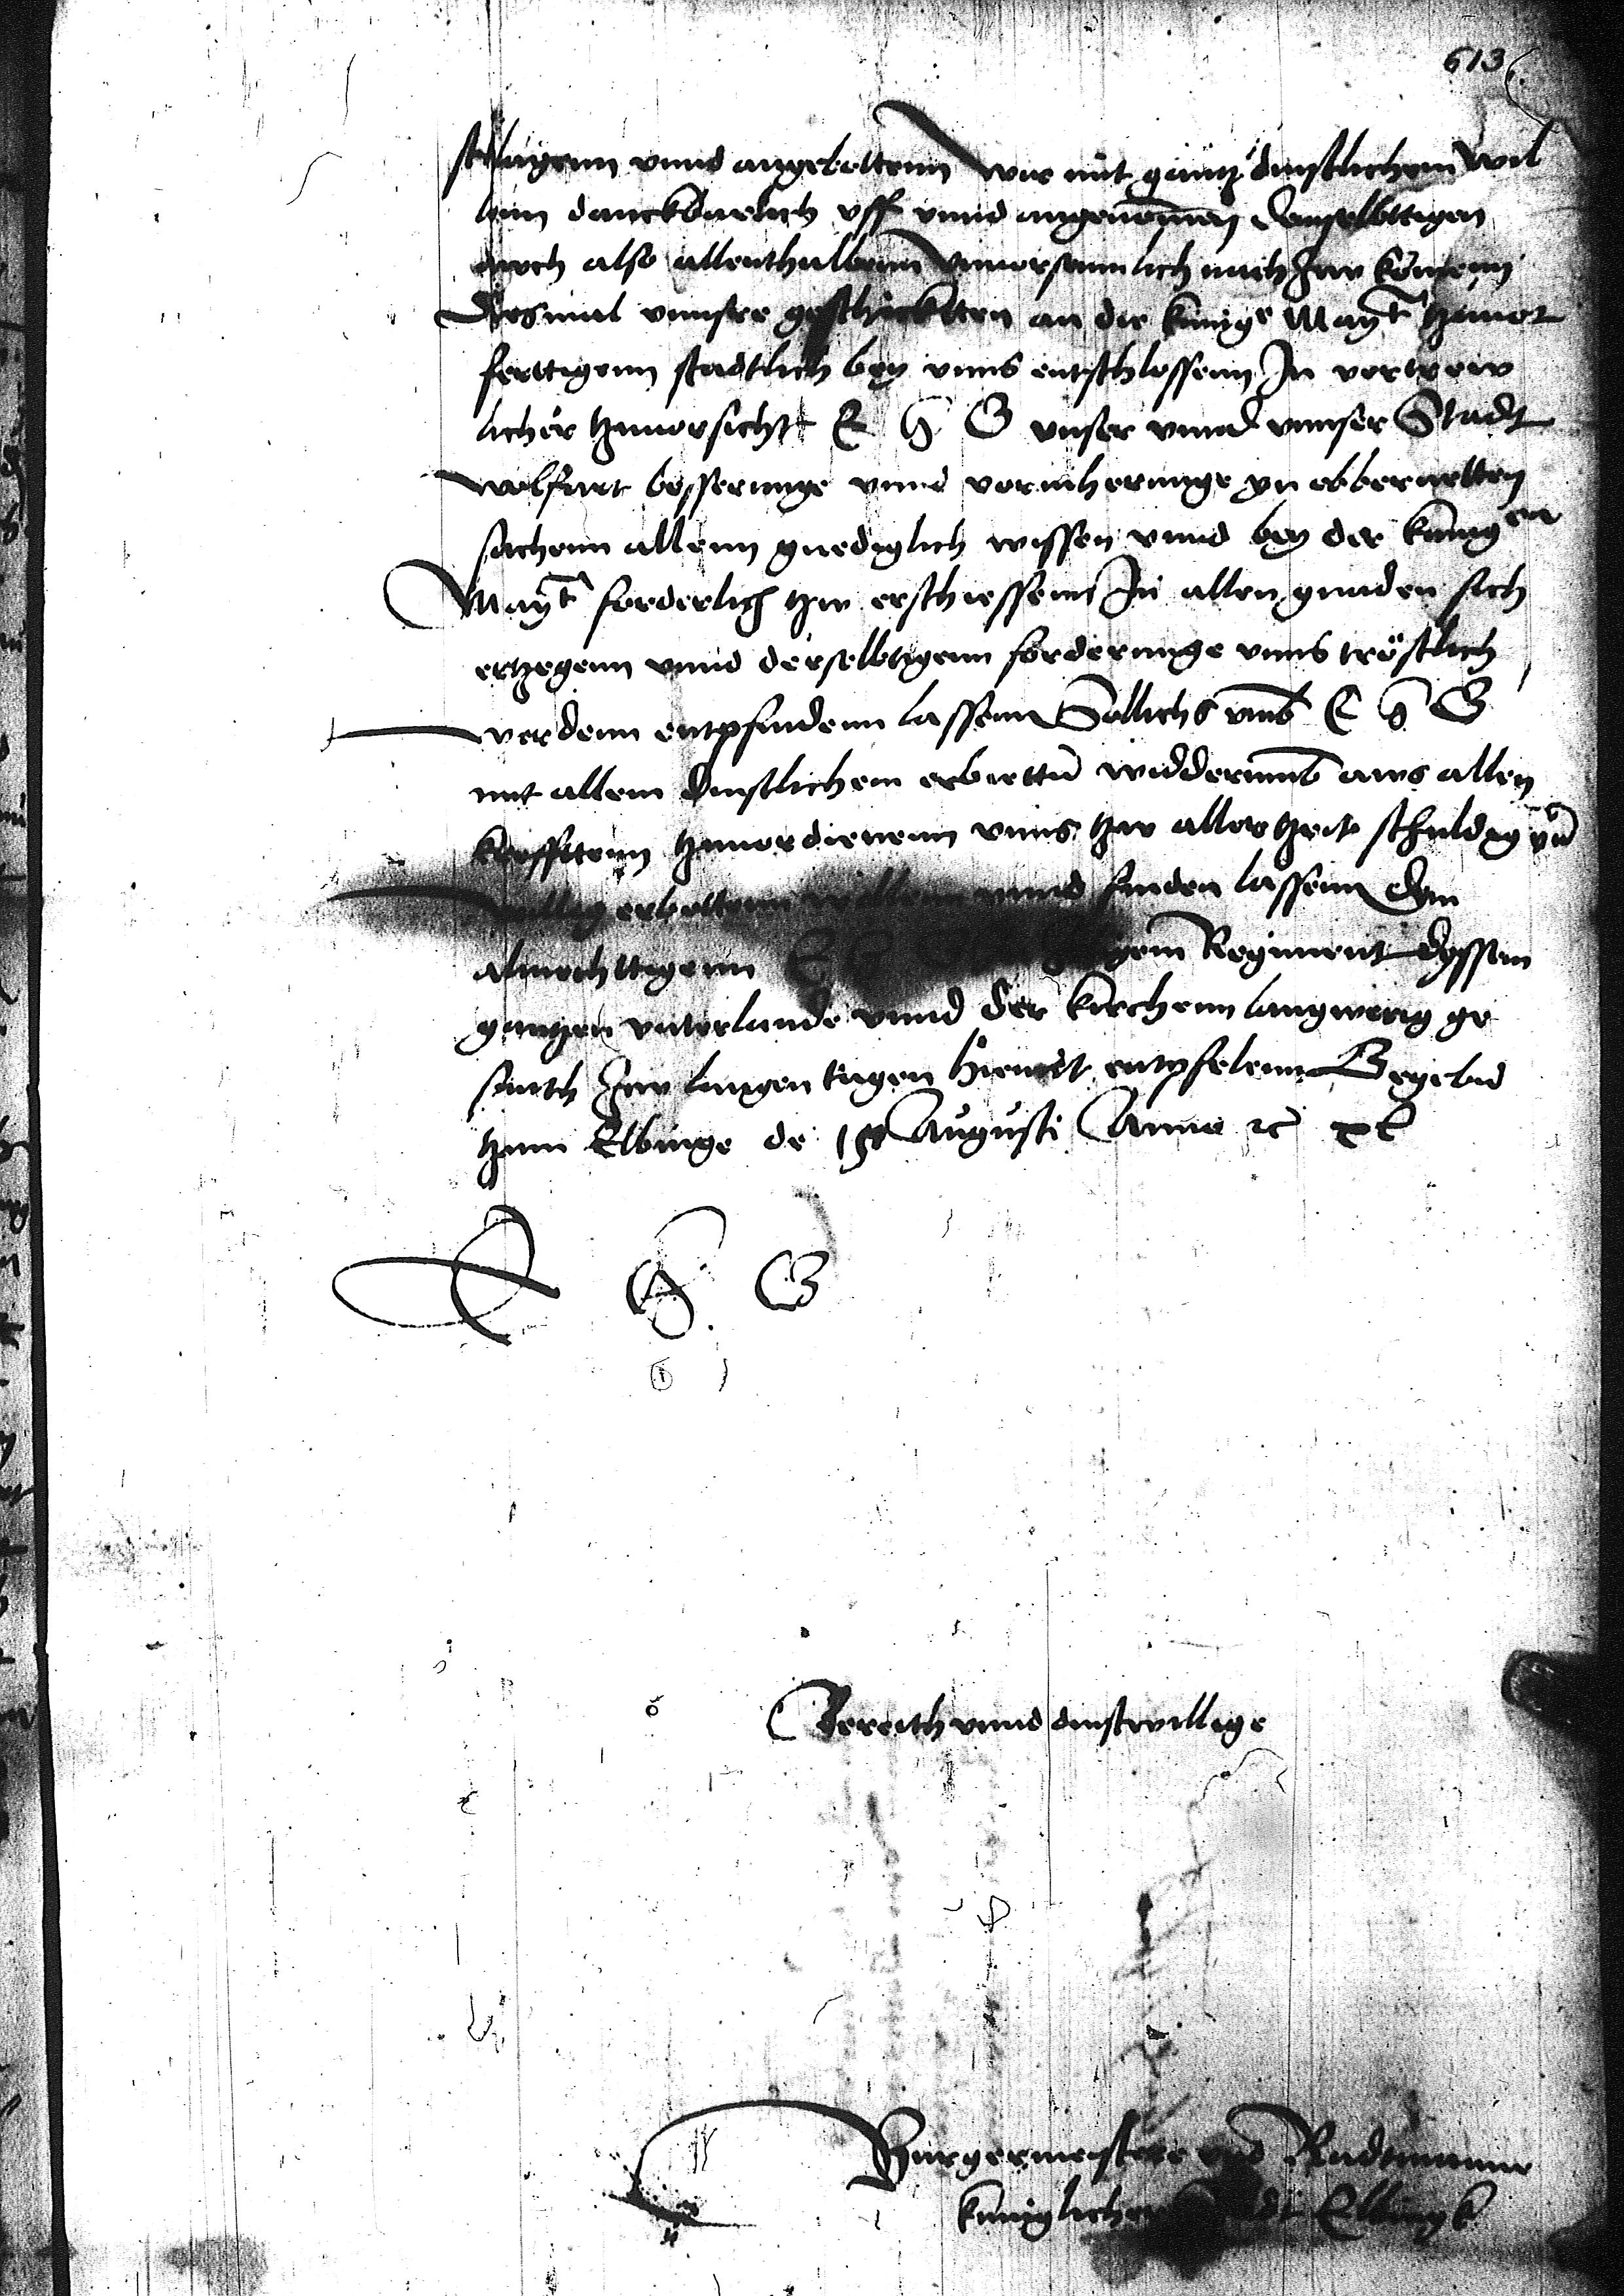 613
schlagenn vnnd angebottenn Wir mit gantz dinstlichem wil
lenn danckbarlich vff vnnd angenomen Denselbttigen
auch also allenthalbenn Vnuorseumlich nach Zw komenn
Diesmal vnnsere geschicktten an die kunige Mayt
ferttigenn stadtlich bey vnns entschlossenn In vertraw
licher tzuuorsicht E H G vnser vnnd vnnser Stadt
wolfart besserunge vnnd vernherunge yn obberurtten
sachenn allenn gnediglich wissen vnnd bey der kunigen
Mayt forderlich tzw erschiessenn In allen gnaden sich
ertzegenn vnnd derselbtigenn forderunge vnns tröstlich
werdenn entpfindenn lassenn Sollichs vmb E H G
mit allem dinstlichem erbiettu widderumb aws allen
krefftenn tzuuordienenn vnns tzw aller tzeit schuldig vn
willig erbottenn willenn vnnd finden lassenn Dem
almechttigenn E H G gem Regiment dyssem
gantzen vaterlande vnnd der kirchenn langwerig ge
sunth Zew langen tagen hiemit entpfelenn Gegebn
tzum Elbinge de 19 Augusti Anno rc xl
E H G
Bereith vnnd dinstwillige
Burgermeistere vnd Radtmanne
kuniglicher Stadt Elbingk